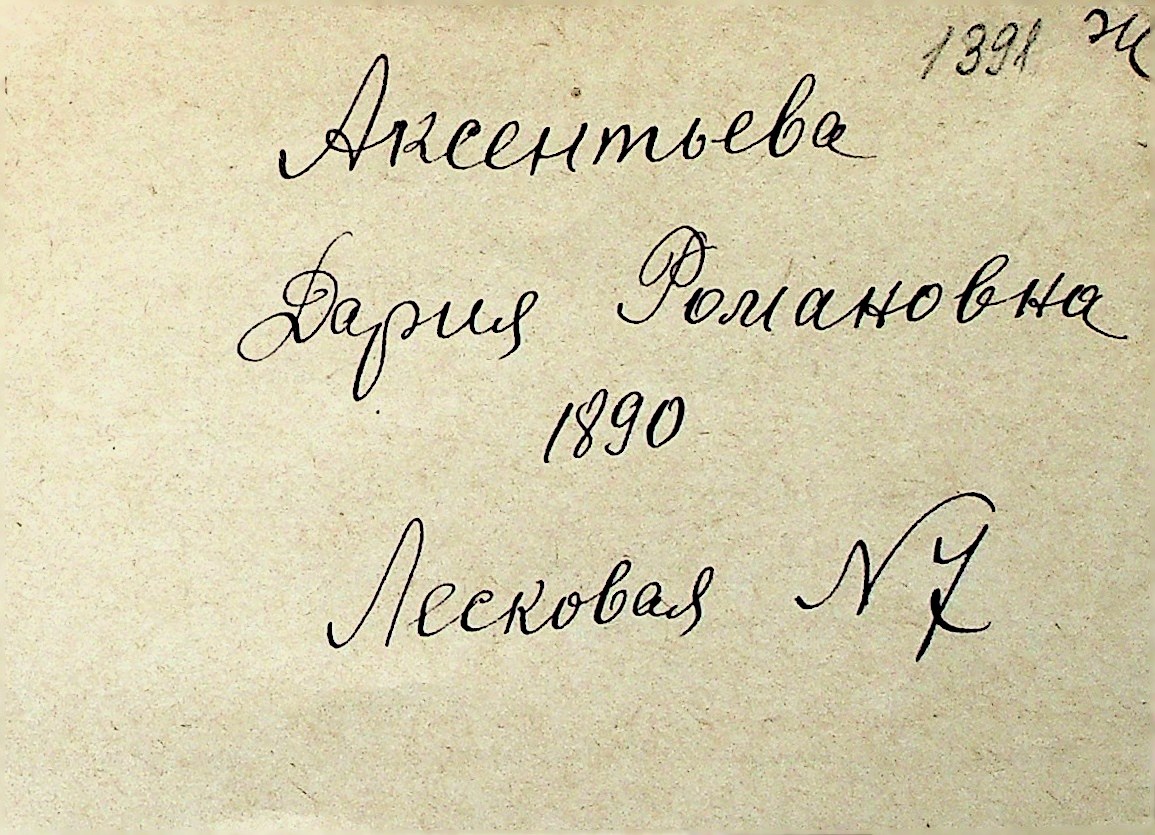 1391 ж
Аксентьева
Дария Романовна
1890
Лесковая N 7